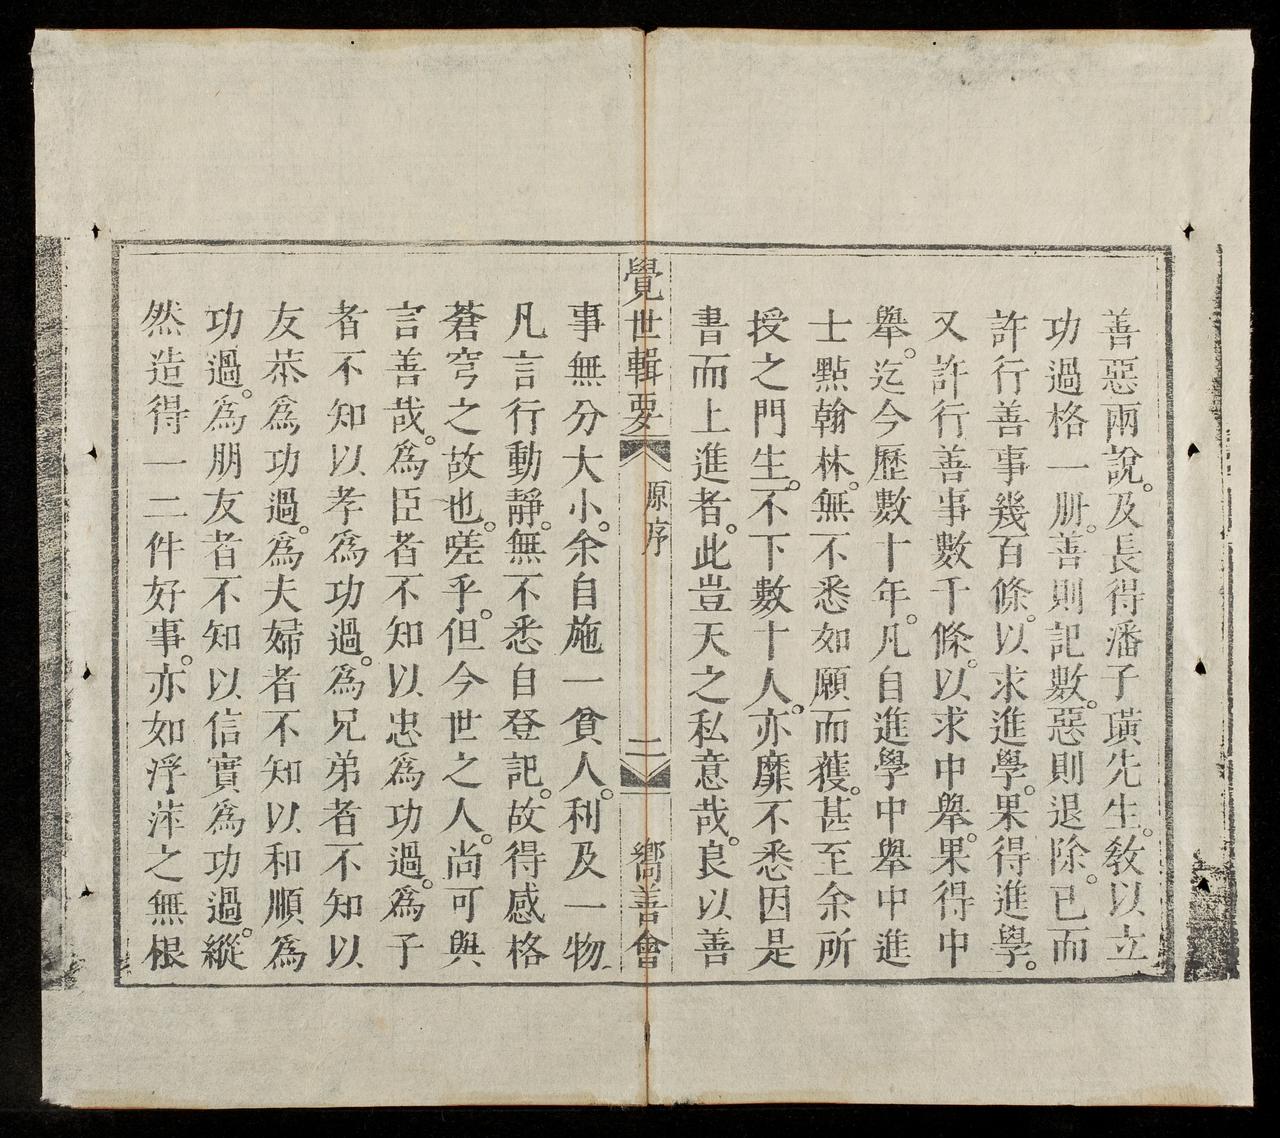 善惡兩說。及長得潘子璜先生。教以立
功過格一册。善則記數。惡則退除。已而
許行善事幾百條。以求進學。果得進學。
又許行善事數千條。以求中舉。果得中
舉。迄今歷數十年。凡自進學中舉中進
士點翰林。無不悉如願而獲。甚至余所
授之門生。不下數十人。亦靡不悉因是
書而上進者。此豈天之私意哉。良以善
覺世輯要 原序 二 嚮善會
事無分大小。余自施一貧人。利及一物
凡言行動靜。無不悉自登記。故得感格
蒼穹之故也。嗟乎。但今世之人。尚可與
言善哉。為臣者不知以忠為功過。為子
者不知以孝為功過。為兄弟者不知以
友恭為功過。為夫婦者不知以和順為
功過。為朋友者不知以信實為功過。縱
然造得一二件好事。亦如浮萍之無根